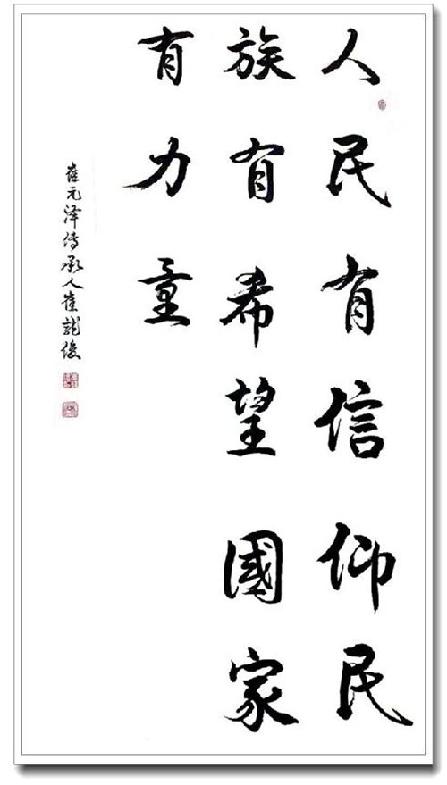 人民有信仰民
族有希望國家
有力量
崔元泽传承人崔龍俊